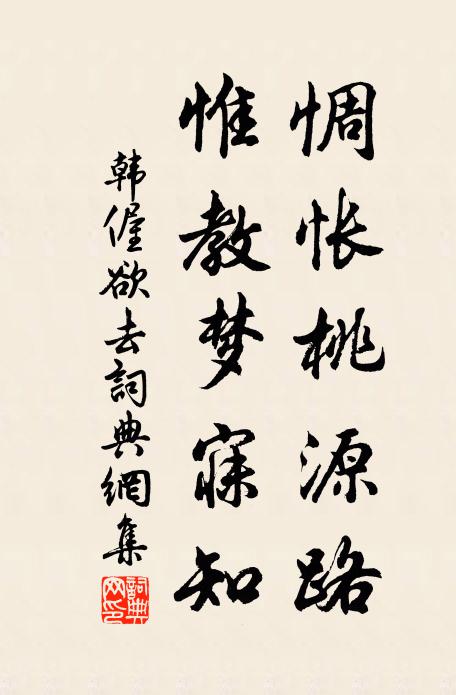 惆怅桃源路
惟教梦寐知
韩偓欲去詞典網集
詞典网印